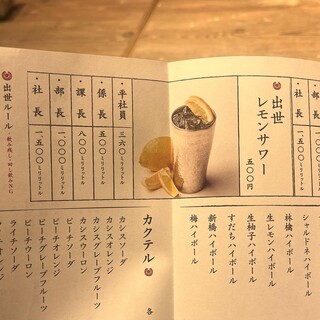 出世
レモンサワー
五〇〇円
・平社員 三六〇ミリリットル
・係長 五〇〇ミリリットル
・課長 八〇〇ミリリットル
・部長 一、〇〇〇ミリリットル
・社長 一、五〇〇ミリリットル
出世ルール
・飲み残し・回し飲みNG
・社長 一、五〇〇ミリリットル
シャルドネハイボール
林檎ハイボール
生レモンハイボール
生柚子ハイボール
すだちハイボール
新橋ハイボール
梅ハイボール
カクテル
各
カシスソーダ
カシスオレンジ
カシスグレープフルーツ
カシスウーロン
ピーチソーダ
ピーチオレンジ
ピーチグレープフルーツ
ピーチウーロン
ライチソーダ
ライチオレンジ